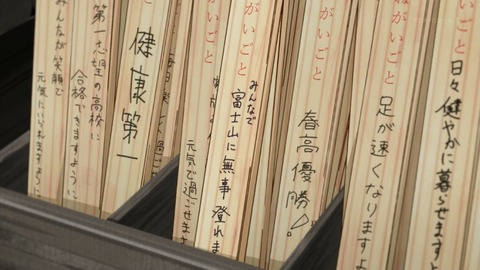 ねがいごと
日々健やかに暮らせますよ
ねがいごと
足が速くなりますよ
がいごと
春高優勝!
がいごと
みんなで
富士山に無事登れま
元気で過ごせます
健康第一
第一志望の高校に
合格できますように
みんなが笑顔で
元気にいられますように